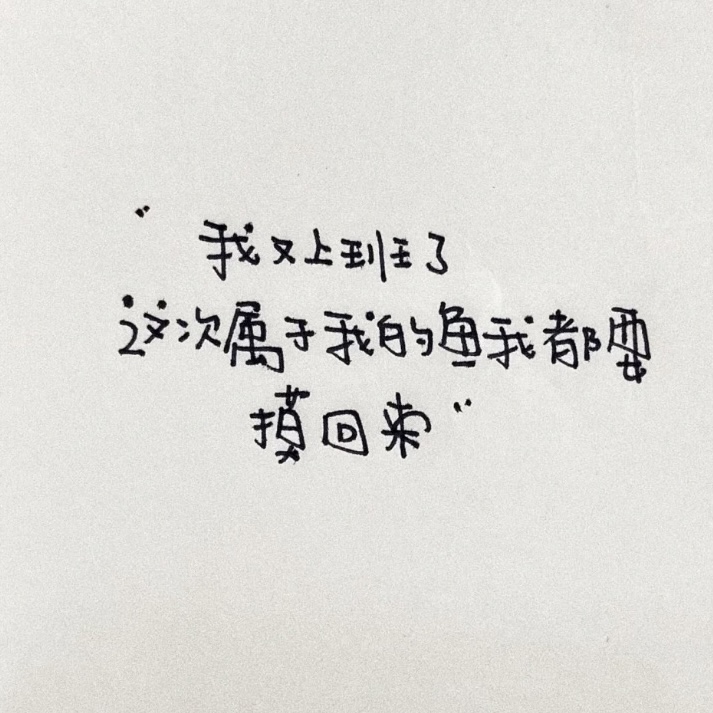 “我又上班了
这次属于我的鱼我都要
摸回来”